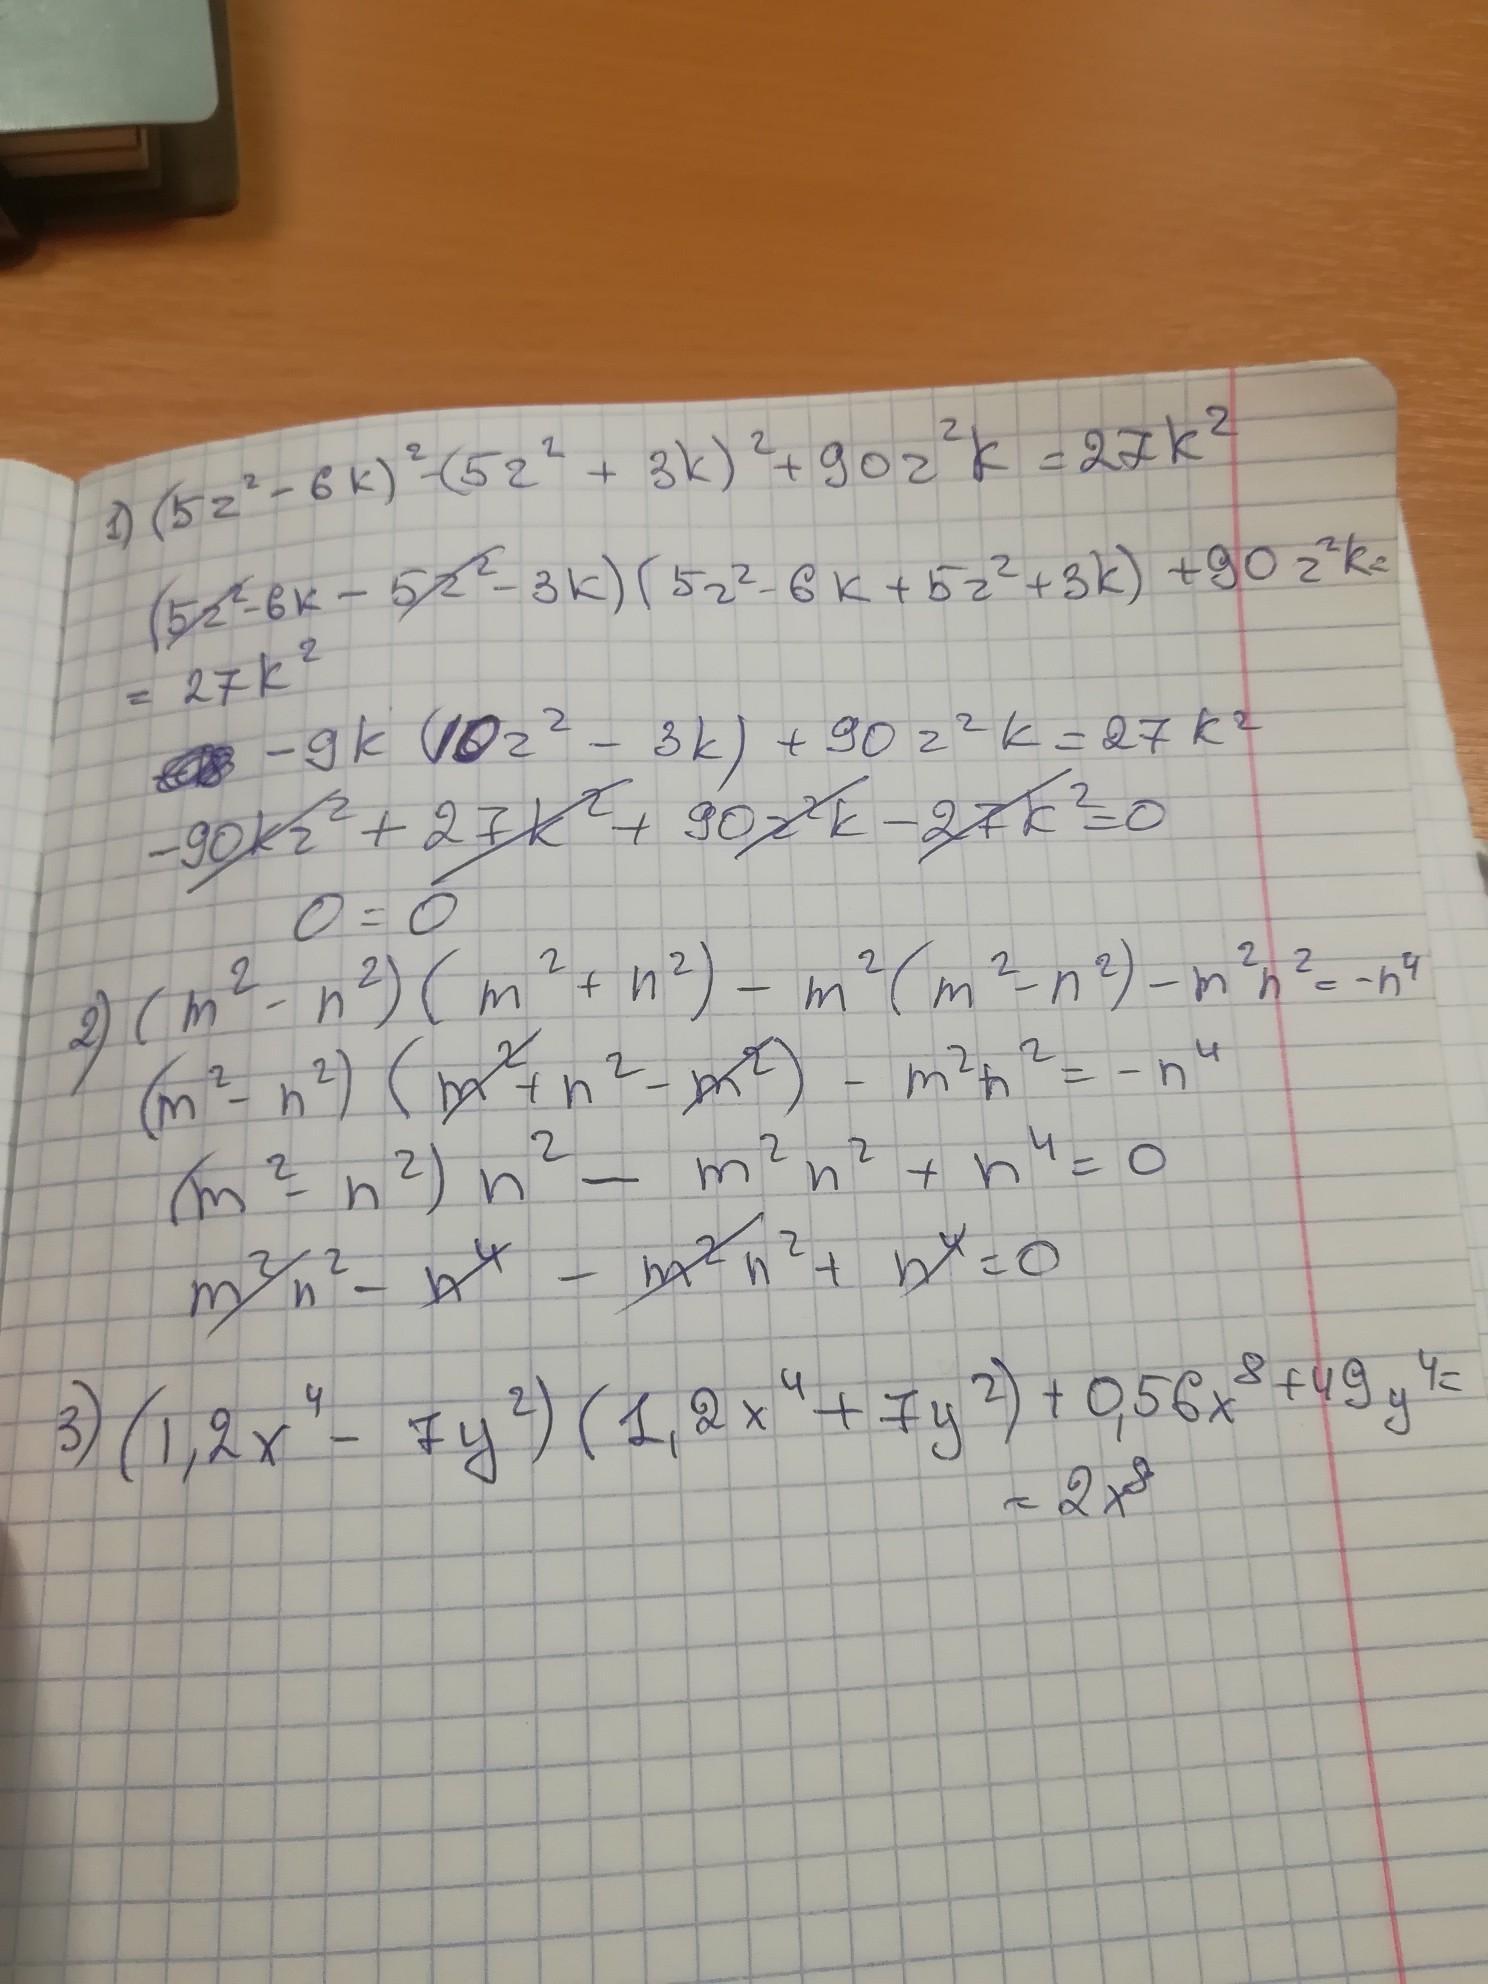 1) (5z² - 6k)² - (5z² + 3k)² + 90z²k = 27k²
(5z² - 6k - 5z² - 3k)(5z² - 6k + 5z² + 3k) + 90z²k =
= 27k²
- 9k (10z² - 3k) + 90z²k = 27k²
- 90kz² + 27k² + 90z²k - 27k² = 0
0 = 0
2) (m² - n²)(m² + n²) - m²(m² - n²) - m²n² = -n⁴
(m² - n²)(m² + n² - m²) - m²n² = -n⁴
(m² - n²) n² - m²n² + n⁴ = 0
m²n² - n⁴ - m²n² + n⁴ = 0
3) (1,2x⁴ - 7y²)(1,2x⁴ + 7y²) + 0,56x⁸ + 49y⁴ =
= 2x⁸